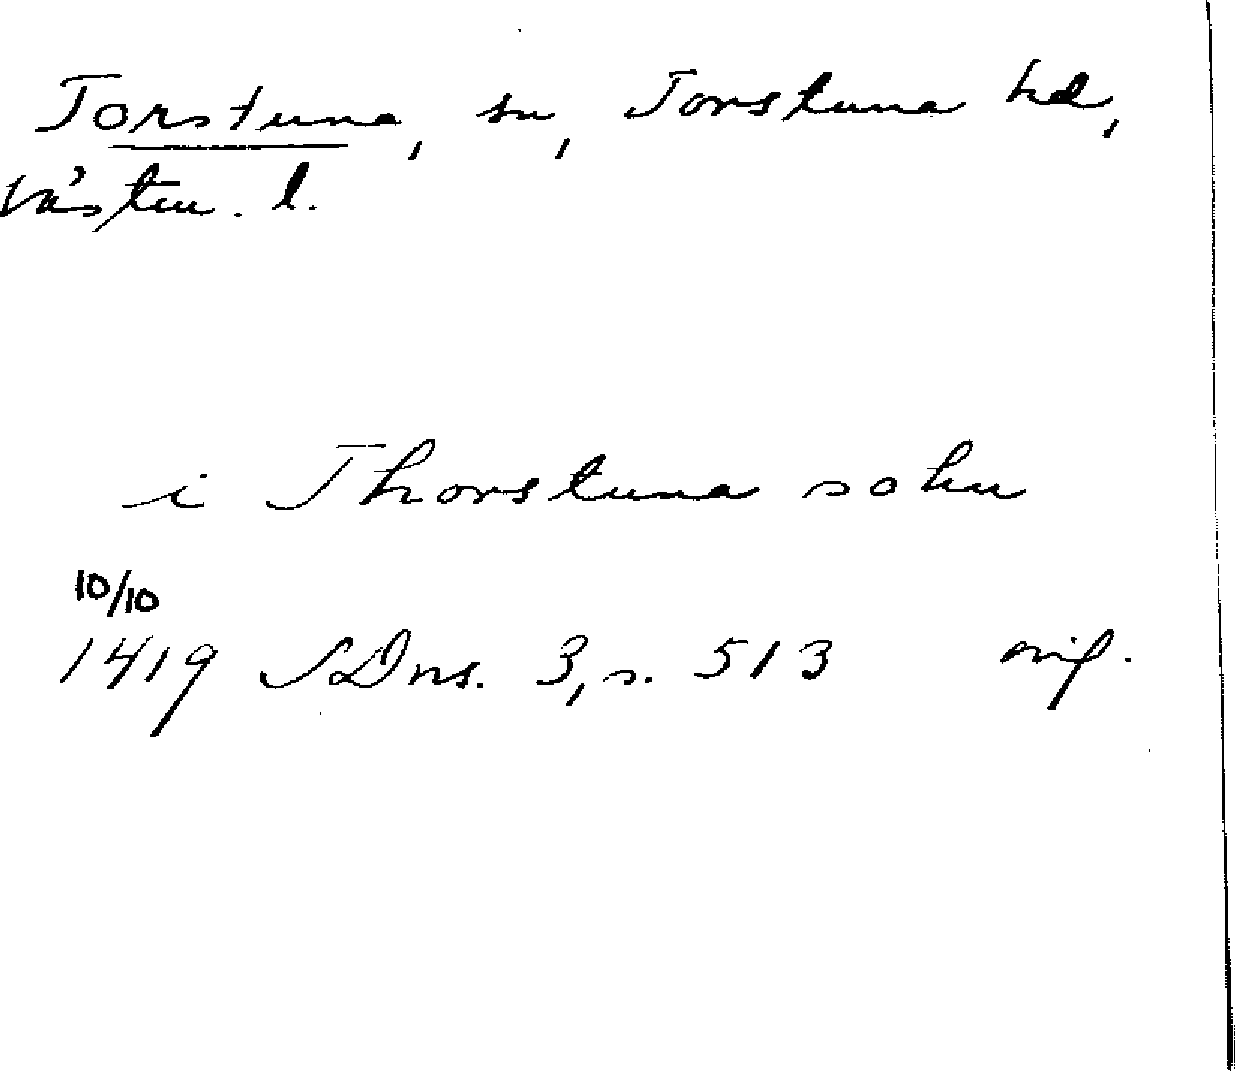 Torstuna, sn, Torstuna hd,
Västm. l.
i Thorstuna sokn
10/10
1419 SDns. 3, s. 513 avig.